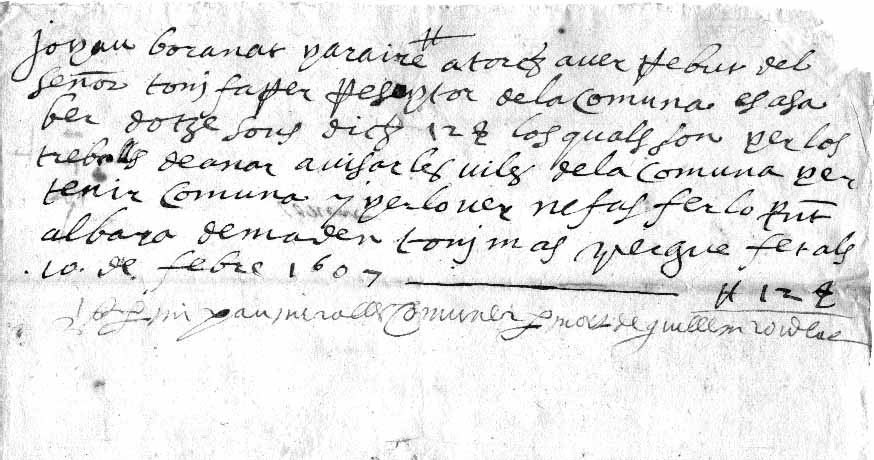 jo pau boranat paraire atorch aver rebut del
señor toni faner reseptor de la comuna es a sa
ber dotze sous dich 12 s los quals son per los
treballs de anar a visar les viles de la comuna per
tenir comuna y per lo ver ne fas fer lo pnt
albara de ma den toni mas y pergue fet als
.10. de febre 1607
12 s
pau miralles comuner p mort de guillem